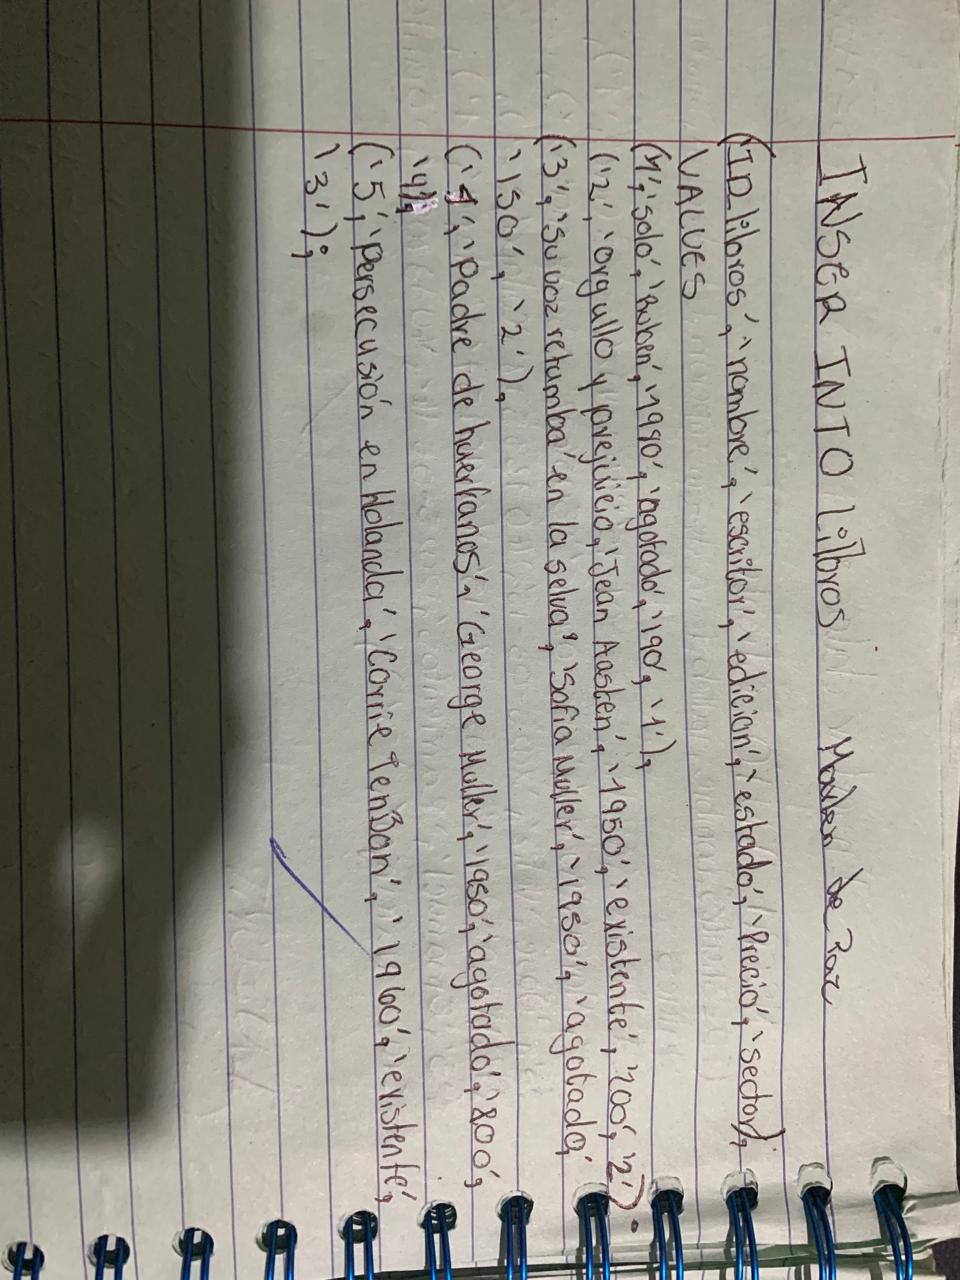 INSER INTO Libros
(ID libros', 'nombre', 'escritor', 'edicion', 'estado', 'Precio', 'sector),
VALUES
(1', 'solo', 'Ruben', '1990', 'agotado', '190', '1'),
('2', 'orgullo y prejuicio, 'Jean Aasten', '1950', 'existente', '200', '2').
('3', 'su voz retumba' en la selva', 'Sofia Muller', '1950', 'agotado',
'150', '2'),
('4', 'Padre de huerfanos', 'George Muller', '1950', 'agotado', '800',
'4'),
('5', 'Persecusión en Holanda', 'Corrie Ten Bon', '1960', 'existente',
'3');